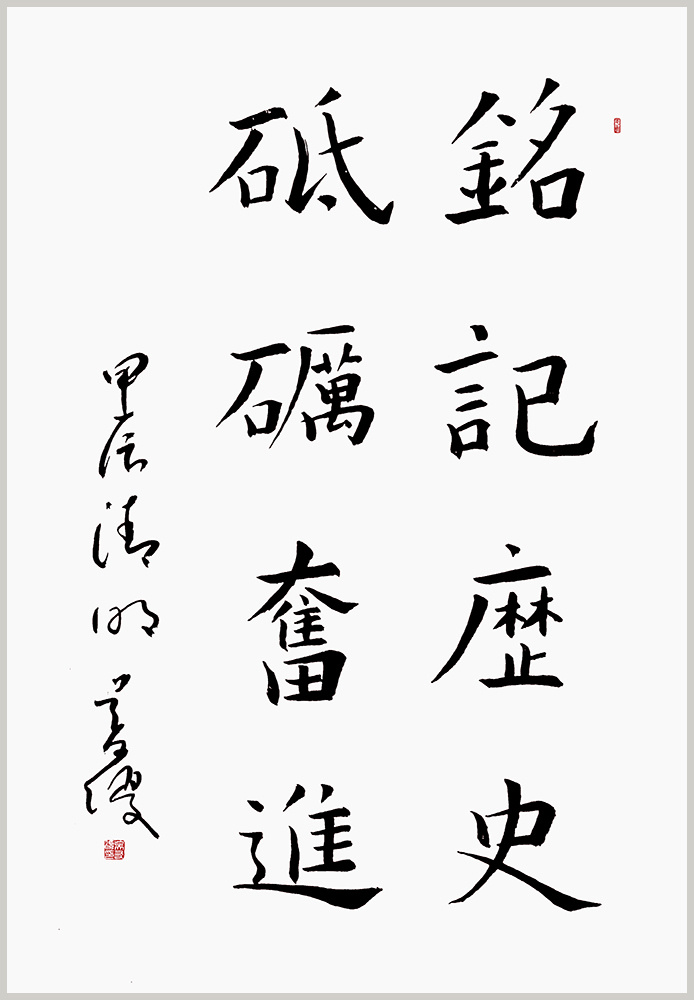 銘記歷史
砥礪奮進
甲辰清明